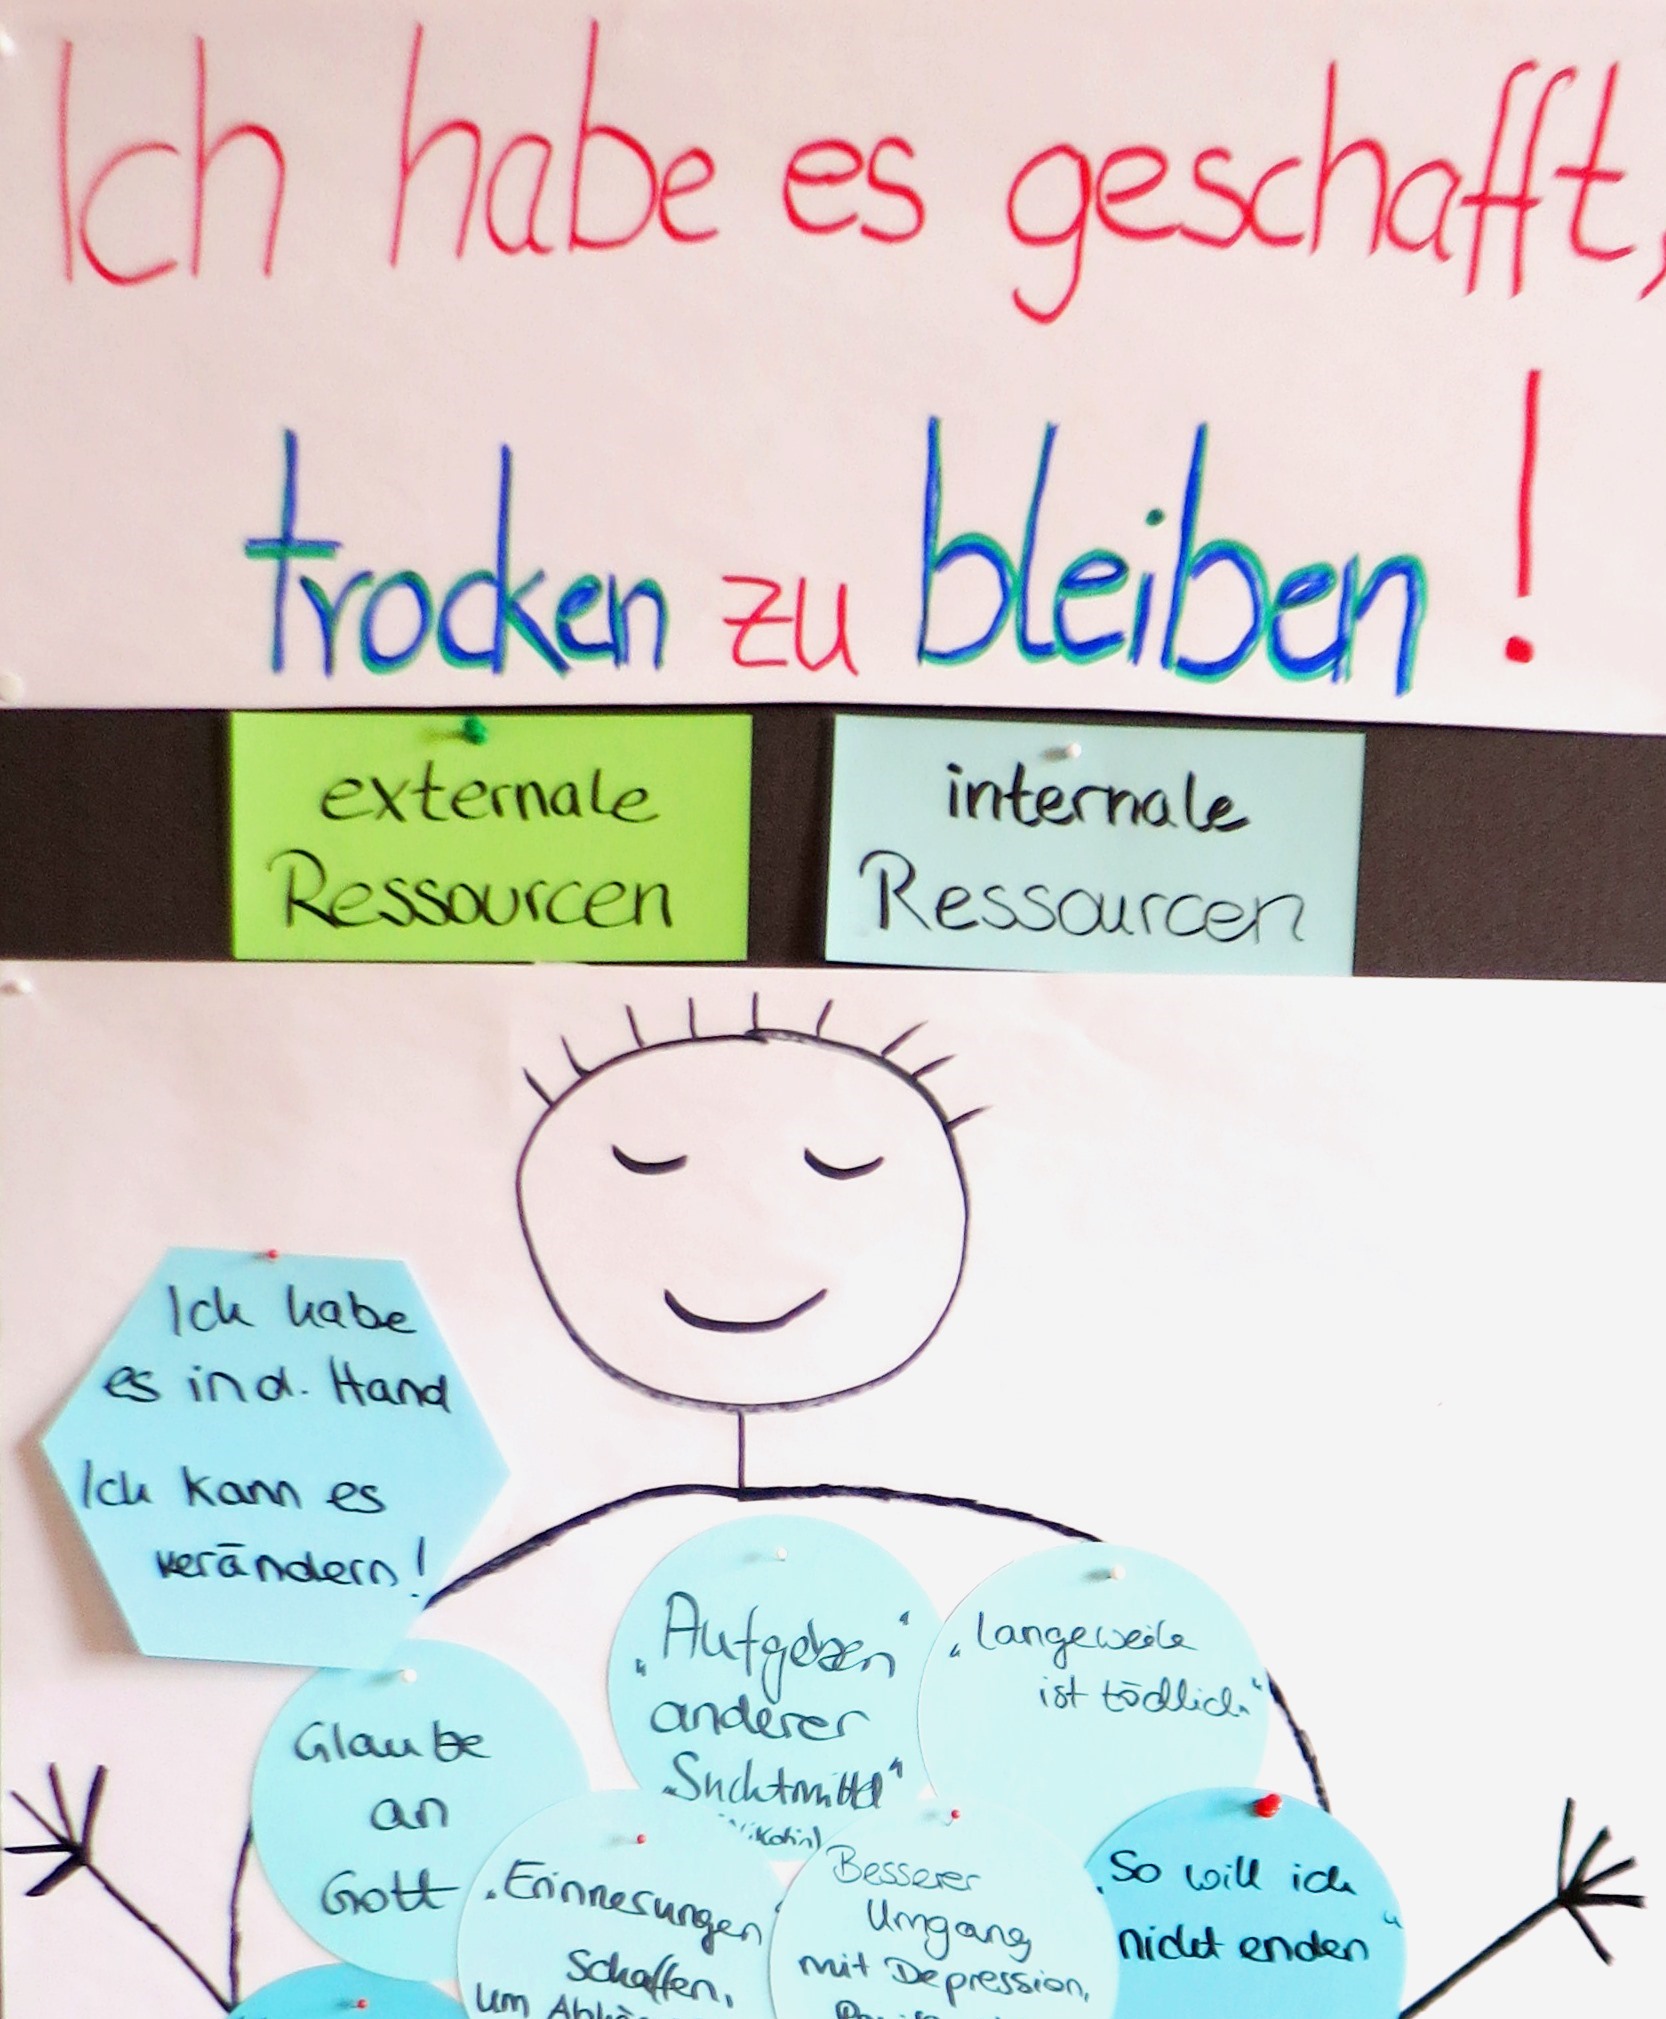 Ich habe es geschafft,
trocken zu bleiben!
externale
Ressourcen
internale
Ressourcen
Ich habe
es in d. Hand
Ich kann es
verändern!
Glaube
an
Gott
„Aufgeben“
anderer
„Suchtmittel“
„Langeweile
ist tödlich“
„Erinnerungen
schaffen,
um
Besserer
Umgang
mit Depression,
„So will ich
nicht enden“